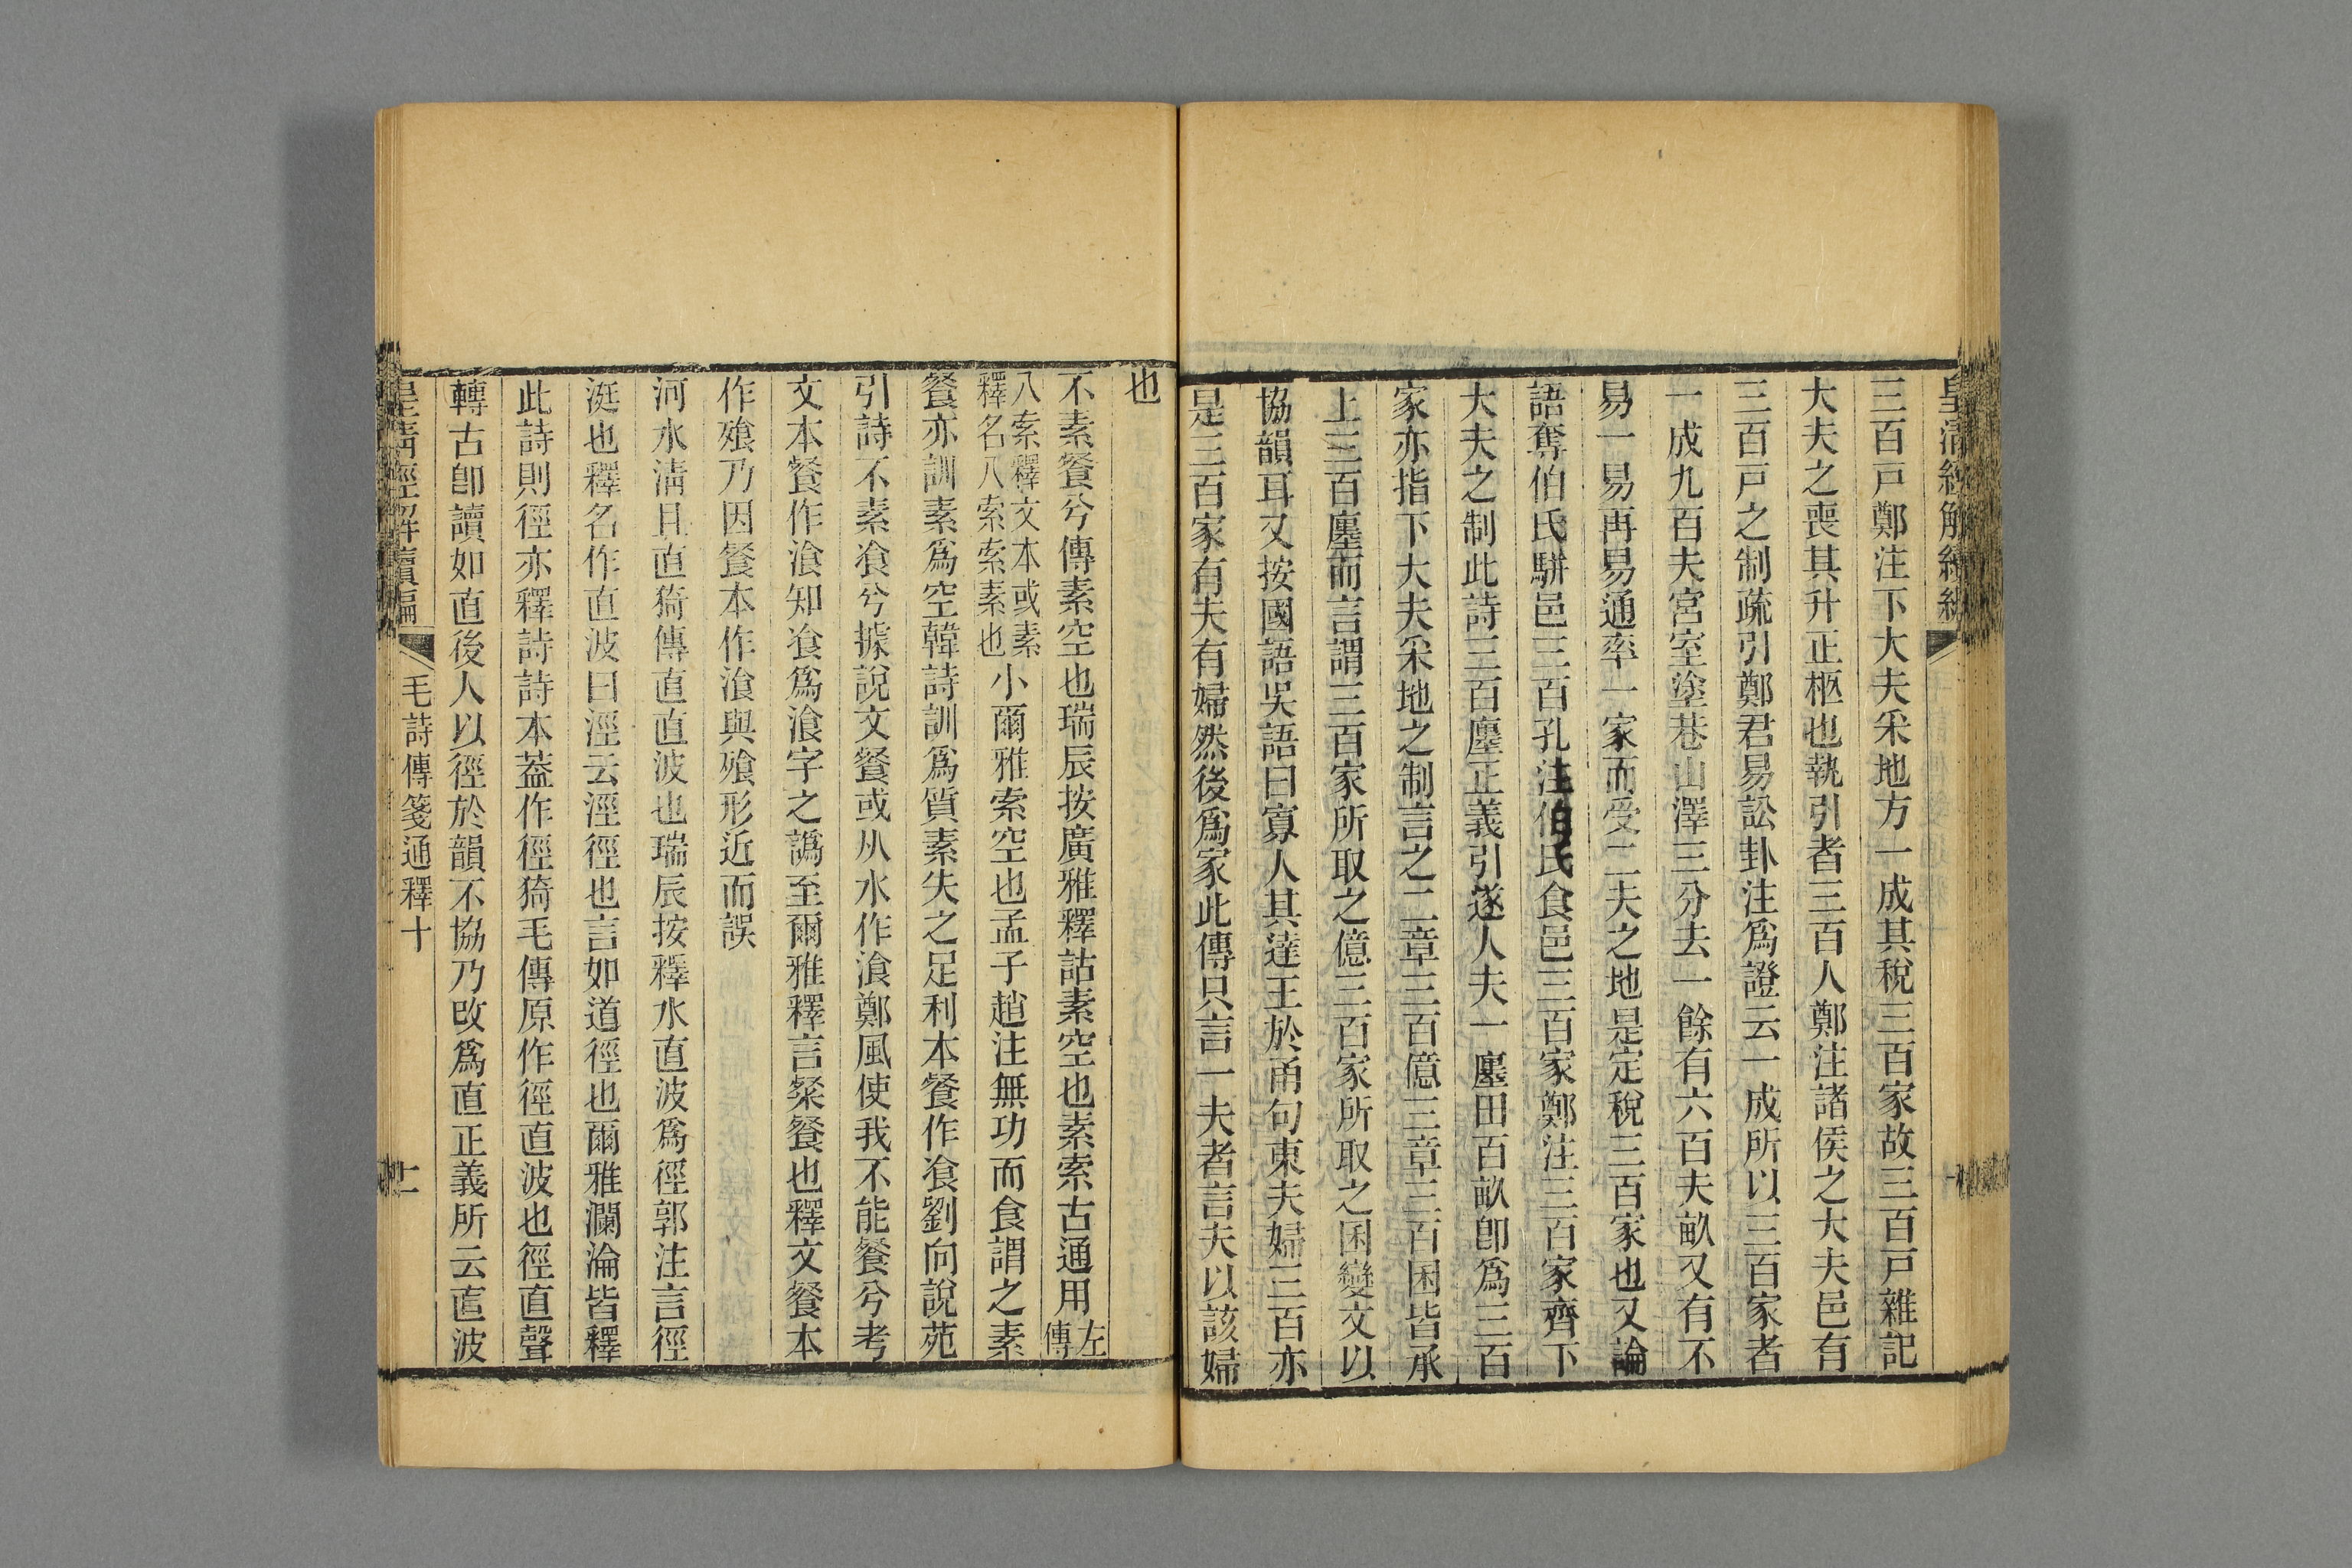 皇清經解續編
三百戸鄭注下大夫釆地方一成其稅三百家故三百戸雜記
大夫之喪其升正柩也執引者三百人鄭注諸侯之大夫邑有
三百戸之制疏引鄭君易訟卦注爲證云一成所以三百家者
一成九百夫宮室塗巷山澤三分去一餘有六百夫畝又有不
易一易再易通率一家而受二夫之地是定稅三百家也又論
語奪伯氏駢邑三百孔注伯氏食邑三百家鄭注三百家齊下
大夫之制此詩三百廛正義引遂人夫一廛田百畝卽爲三百
家亦指下大夫釆地之制言之二章三百億三章三百囷皆承
上三百廛而言謂三百家所取之億三百家所取之囷變文以
協韻耳又按國語吳語曰寡人其達王於甬句東夫婦三百亦
是三百家有夫有婦然後爲家此傳只言一夫者言夫以該婦
也
不素餐兮傳素空也瑞辰按廣雅釋詁素空也素索古通用左傳
八索釋文本或素釋名八索索素也小爾雅索空也孟子趙注無功而食謂之素
餐亦訓素爲空韓詩訓爲質素失之足利本餐作飡劉向說苑
引詩不素飡兮據說文餐或从水作湌鄭風使我不能餐兮考
文本餐作湌知飡爲湌字之譌至爾雅釋言粲餐也釋文餐本
作飱乃因餐本作湌與飱形近而誤
河水淸且直猗傳直直波也瑞辰按釋水直波爲徑郭注言徑
涏也釋名作直波曰涇云涇徑也言如道徑也爾雅瀾淪皆釋
此詩則徑亦釋詩詩本葢作徑猗毛傳原作徑直波也徑直聲
轉古卽讀如直後人以徑於韻不協乃改爲直正義所云直波
皇清經解續編
毛詩傳箋通釋十
十一